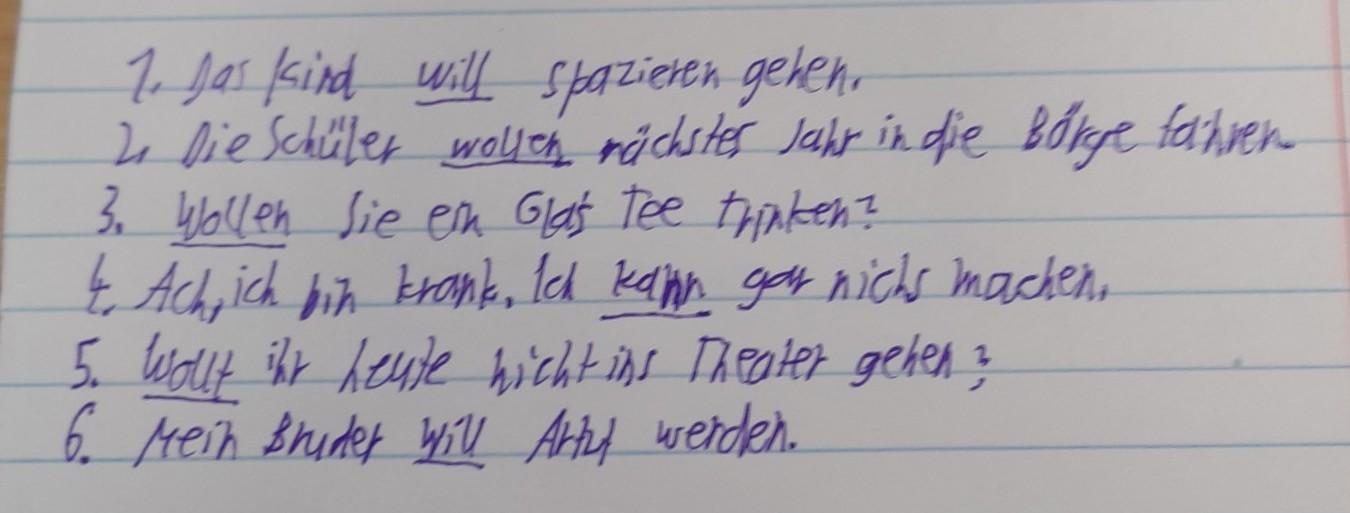 1. Das Kind will spazieren gehen.
2. Die Schüler wollen nächstes Jahr in die Börge fahren.
3. Wollen Sie ein Glas Tee trinken?
4. Ach, ich bin krank. Ich kann gar nichs machen.
5. Wollt ihr heute nicht ins Theater gehen?
6. Mein Bruder will Artzt werden.